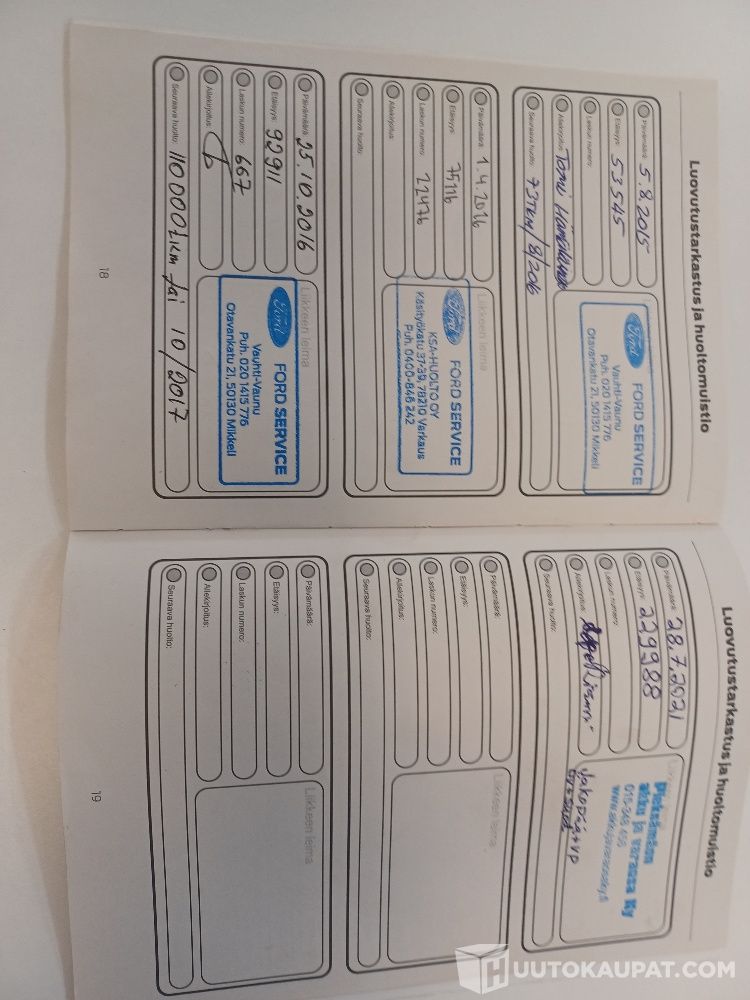 Luovutustarkastus ja huoltomuistio
Päivämäärä: 5.8.2015
Etäisyys: 53545
Laskun numero:
Allekirjoitus: Tomi
Seuraava huolto: 73Tkm/8/2016
Ford FORD SERVICE
Vauhti-Vaunu
Puh. 020 1415 776
Otavankatu 21, 50130 Mikkeli
Päivämäärä: 1.4.2016
Etäisyys: 75116
Laskun numero: 22476
Allekirjoitus:
Seuraava huolto:
Liikkeen leima
Ford FORD SERVICE
KSA-HUOLTO OY
Käsityökatu 37-39, 78210 Varkaus
Puh. 0400-846 242
Päivämäärä: 25.10.2016
Etäisyys: 92911
Laskun numero: 667
Allekirjoitus:
Seuraava huolto: 110000tkm tai 10/2017
Liikkeen leima
Ford FORD SERVICE
Vauhti-Vaunu
Puh. 020 1415 776
Otavankatu 21, 50130 Mikkeli
18
Luovutustarkastus ja huoltomuistio
Päivämäärä: 28.7.2021
Etäisyys: 229988
Laskun numero:
Allekirjoitus:
Seuraava huolto:
Pieksämäen
akku ja varaosa Ky
015-348 456
www.akkujavaraosaky.fi
Jakopää+vp
Päivämäärä:
Etäisyys:
Laskun numero:
Allekirjoitus:
Seuraava huolto:
Liikkeen leima
Päivämäärä:
Etäisyys:
Laskun numero:
Allekirjoitus:
Seuraava huolto:
Liikkeen leima
19
HUUTOKAUPAT.COM